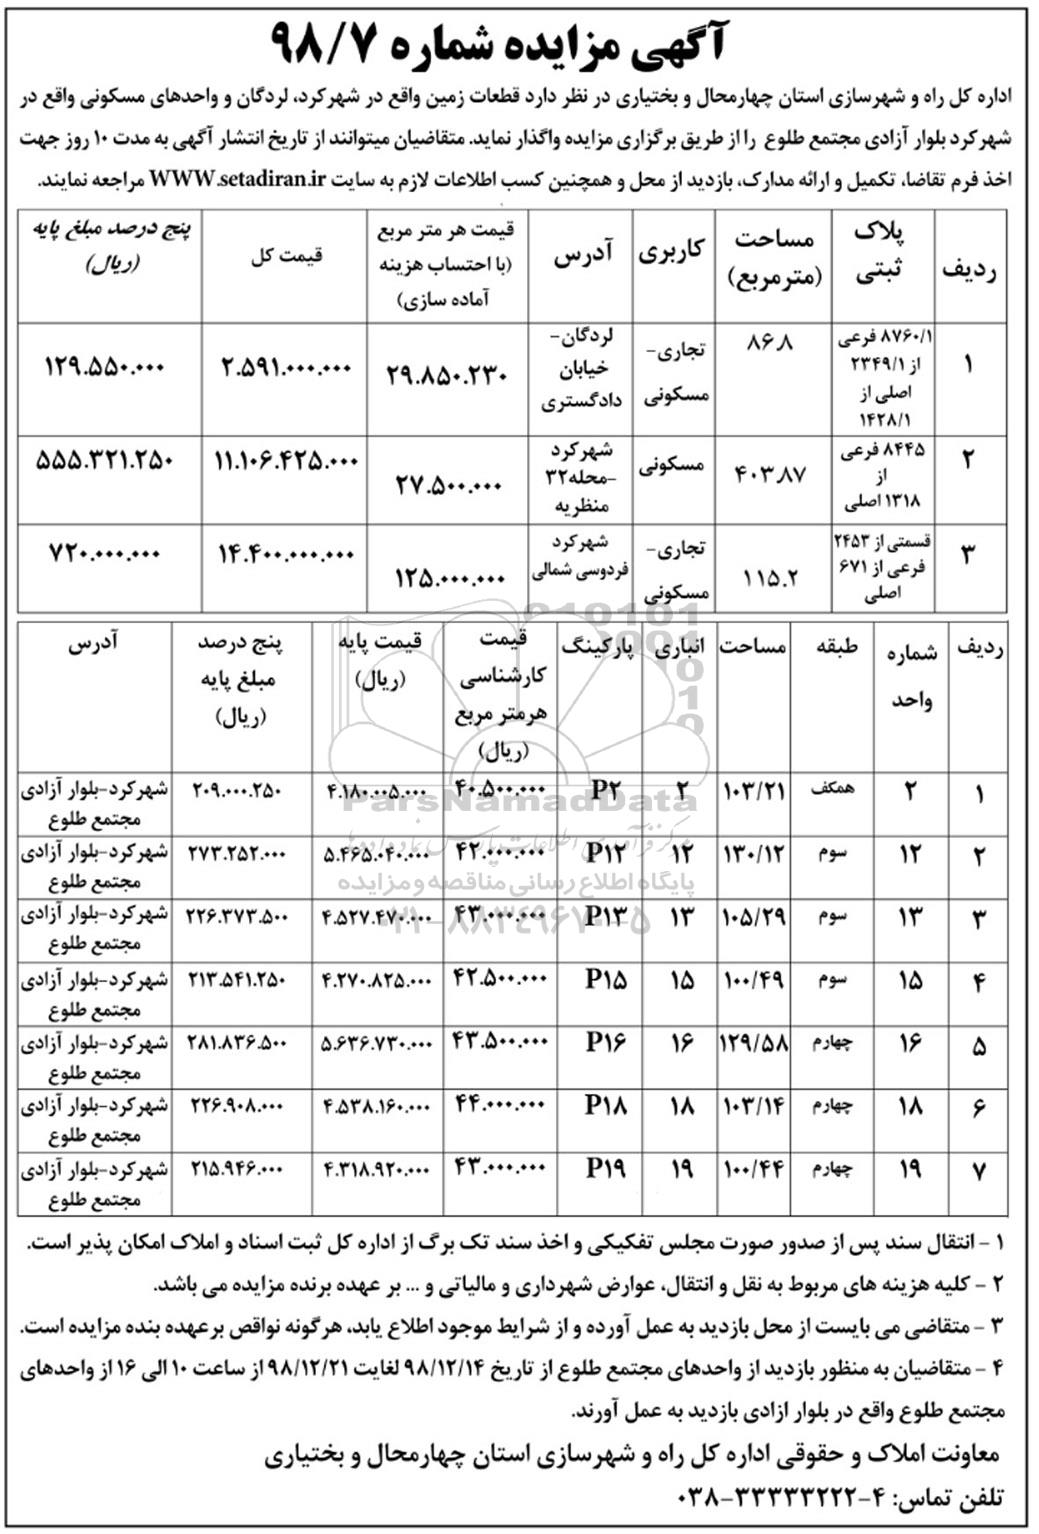 آگهی مزایده شماره ۹۸/۷
اداره کل راه و شهرسازی استان چهارمحال و بختیاری در نظر دارد قطعات زمین واقع در شهرکرد، لردگان و واحدهای مسکونی واقع در
شهرکرد بلوار آزادی مجتمع طلوع را از طریق برگزاری مزایده واگذار نماید. متقاضیان میتوانند از تاریخ انتشار آگهی به مدت ۱۰ روز جهت
اخذ فرم تقاضا، تکمیل و ارائه مدارک، بازدید از محل و همچنین کسب اطلاعات لازم به سایت WWW.setadiran.ir مراجعه نمایند.
ردیف | پلاک ثبتی | مساحت (مترمربع) | کاربری | آدرس | قیمت هر متر مربع (با احتساب هزینه آماده سازی) | قیمت کل | پنج درصد مبلغ پایه (ریال)
۱ | ۸۷۶۰/۱ فرعی از ۲۳۴۹/۱ اصلی از ۱۴۲۸/۱ | ۸۶.۸ | تجاری- مسکونی | لردگان- خیابان دادگستری | ۲۹.۸۵۰.۲۳۰ | ۲.۵۹۱.۰۰۰.۰۰۰ | ۱۲۹.۵۵۰.۰۰۰
۲ | ۸۴۴۵ فرعی از ۱۳۱۸ اصلی | ۴۰۳.۸۷ | مسکونی | شهرکرد -محله۳۲ منظریه | ۲۷.۵۰۰.۰۰۰ | ۱۱.۱۰۶.۴۲۵.۰۰۰ | ۵۵۵.۳۲۱.۲۵۰
۳ | قسمتی از ۲۴۵۳ فرعی از ۶۷۱ اصلی | ۱۱۵.۲ | تجاری- مسکونی | شهرکرد فردوسی شمالی | ۱۲۵.۰۰۰.۰۰۰ | ۱۴.۴۰۰.۰۰۰.۰۰۰ | ۷۲۰.۰۰۰.۰۰۰
ردیف | شماره واحد | طبقه | مساحت | انباری | پارکینگ | قیمت کارشناسی هرمتر مربع (ریال) | قیمت پایه (ریال) | پنج درصد مبلغ پایه (ریال) | آدرس
۱ | ۲ | همکف | ۱۰۳/۲۱ | ۲ | P۲ | ۴۰.۵۰۰.۰۰۰ | ۴.۱۸۰.۰۰۵.۰۰۰ | ۲۰۹.۰۰۰.۲۵۰ | شهرکرد-بلوار آزادی مجتمع طلوع
۲ | ۱۲ | سوم | ۱۳۰/۱۲ | ۱۲ | P۱۲ | ۴۲.۰۰۰.۰۰۰ | ۵.۴۶۵.۰۴۰.۰۰۰ | ۲۷۳.۲۵۲.۰۰۰ | شهرکرد-بلوار آزادی مجتمع طلوع
۳ | ۱۳ | سوم | ۱۰۵/۲۹ | ۱۳ | P۱۳ | ۴۳.۰۰۰.۰۰۰ | ۴.۵۲۷.۴۷۰.۰۰۰ | ۲۲۶.۳۷۳.۵۰۰ | شهرکرد-بلوار آزادی مجتمع طلوع
۴ | ۱۵ | سوم | ۱۰۰/۴۹ | ۱۵ | P۱۵ | ۴۲.۵۰۰.۰۰۰ | ۴.۲۷۰.۸۲۵.۰۰۰ | ۲۱۳.۵۴۱.۲۵۰ | شهرکرد-بلوار آزادی مجتمع طلوع
۵ | ۱۶ | چهارم | ۱۲۹/۵۸ | ۱۶ | P۱۶ | ۴۳.۵۰۰.۰۰۰ | ۵.۶۳۶.۷۳۰.۰۰۰ | ۲۸۱.۸۳۶.۵۰۰ | شهرکرد-بلوار آزادی مجتمع طلوع
۶ | ۱۸ | چهارم | ۱۰۳/۱۴ | ۱۸ | P۱۸ | ۴۴.۰۰۰.۰۰۰ | ۴.۵۳۸.۱۶۰.۰۰۰ | ۲۲۶.۹۰۸.۰۰۰ | شهرکرد-بلوار آزادی مجتمع طلوع
۷ | ۱۹ | چهارم | ۱۰۰/۴۴ | ۱۹ | P۱۹ | ۴۳.۰۰۰.۰۰۰ | ۴.۳۱۸.۹۲۰.۰۰۰ | ۲۱۵.۹۴۶.۰۰۰ | شهرکرد-بلوار آزادی مجتمع طلوع
ParsNamadData
پایگاه اطلاع رسانی مناقصه و مزایده
۰۲۱-۸۸۳۴۹۶۷۰-۵
۱ - انتقال سند پس از صدور صورت مجلس تفکیکی و اخذ سند تک برگ از اداره کل ثبت اسناد و املاک امکان پذیر است.
۲ - کلیه هزینه های مربوط به نقل و انتقال، عوارض شهرداری و مالیاتی و ... بر عهده برنده مزایده می باشد.
۳ - متقاضی می بایست از محل بازدید به عمل آورده و از شرایط موجود اطلاع یابد، هرگونه نواقص برعهده بنده مزایده است.
۴ - متقاضیان به منظور بازدید از واحدهای مجتمع طلوع از تاریخ ۹۸/۱۲/۱۴ لغایت ۹۸/۱۲/۲۱ از ساعت ۱۰ الی ۱۶ از واحدهای
مجتمع طلوع واقع در بلوار ازادی بازدید به عمل آورند.
معاونت املاک و حقوقی اداره کل راه و شهرسازی استان چهارمحال و بختیاری
تلفن تماس: ۴-۳۳۳۳۳۲۲۲-۰۳۸